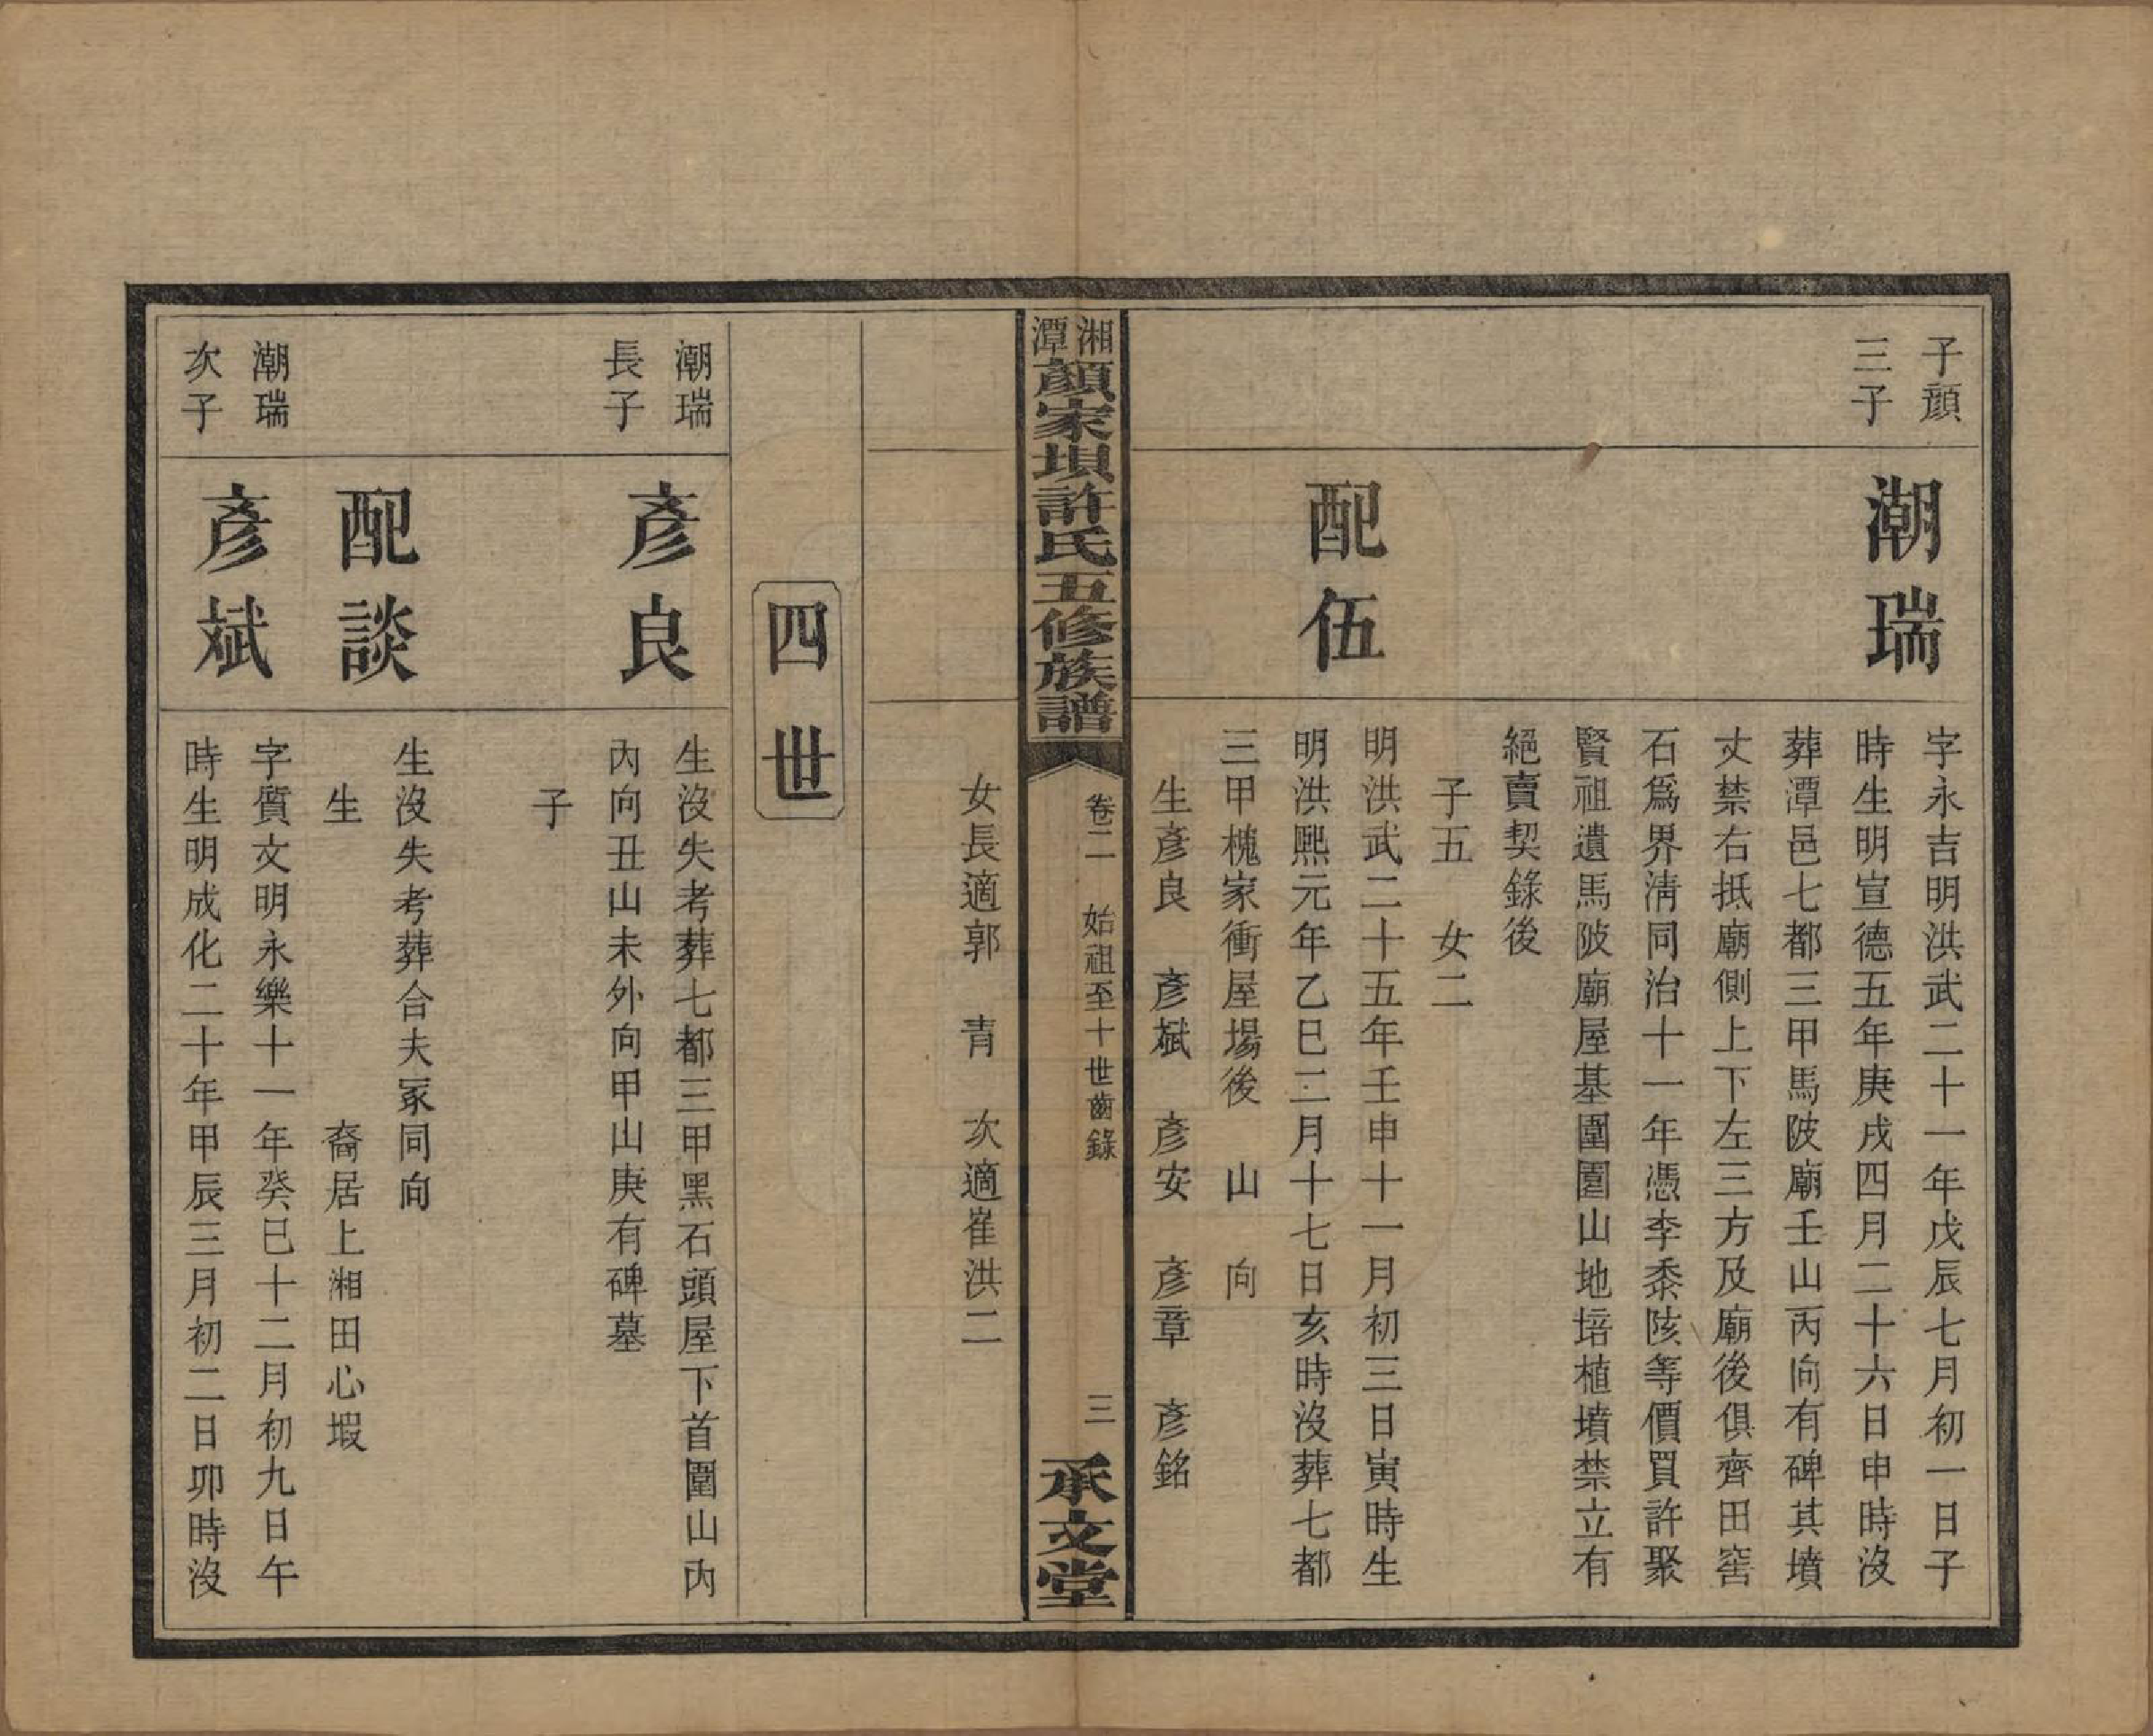 子顏
三子
潮瑞
字永吉明洪武二十一年戊辰七月初一日子
時生明宣德五年庚戌四月二十六日申時沒
葬潭邑七都三甲馬陂廟壬山丙向有碑其墳
丈禁右抵廟側上下左三方及廟後俱齊田窖
石爲界淸同治十一年憑李黍陔等價買許聚
賢祖遺馬陂廟屋基圍園山地培植墳禁立有
絕賣契錄後
子五　女二
配伍
明洪武二十五年壬申十一月初三日寅時生
明洪熙元年乙巳二月十七日亥時沒葬七都
三甲槐家衝屋場後　山　向
生彥良　彥斌　彥安　彥章　彥銘
湘潭顏家垻許氏五修族譜
卷二　始祖至十世齒錄
三
承文堂
女長適郭　青　次適崔洪二
四世
潮瑞
長子
彥良
生沒失考葬七都三甲黑石頭屋下首圍山內
內向丑山未外向甲山庚有碑墓
子
配談
生沒失考葬合夫冢同向
生　　　裔居上湘田心塅
潮瑞
次子
彥斌
字質文明永樂十一年癸巳十二月初九日午
時生明成化二十年甲辰三月初二日卯時沒